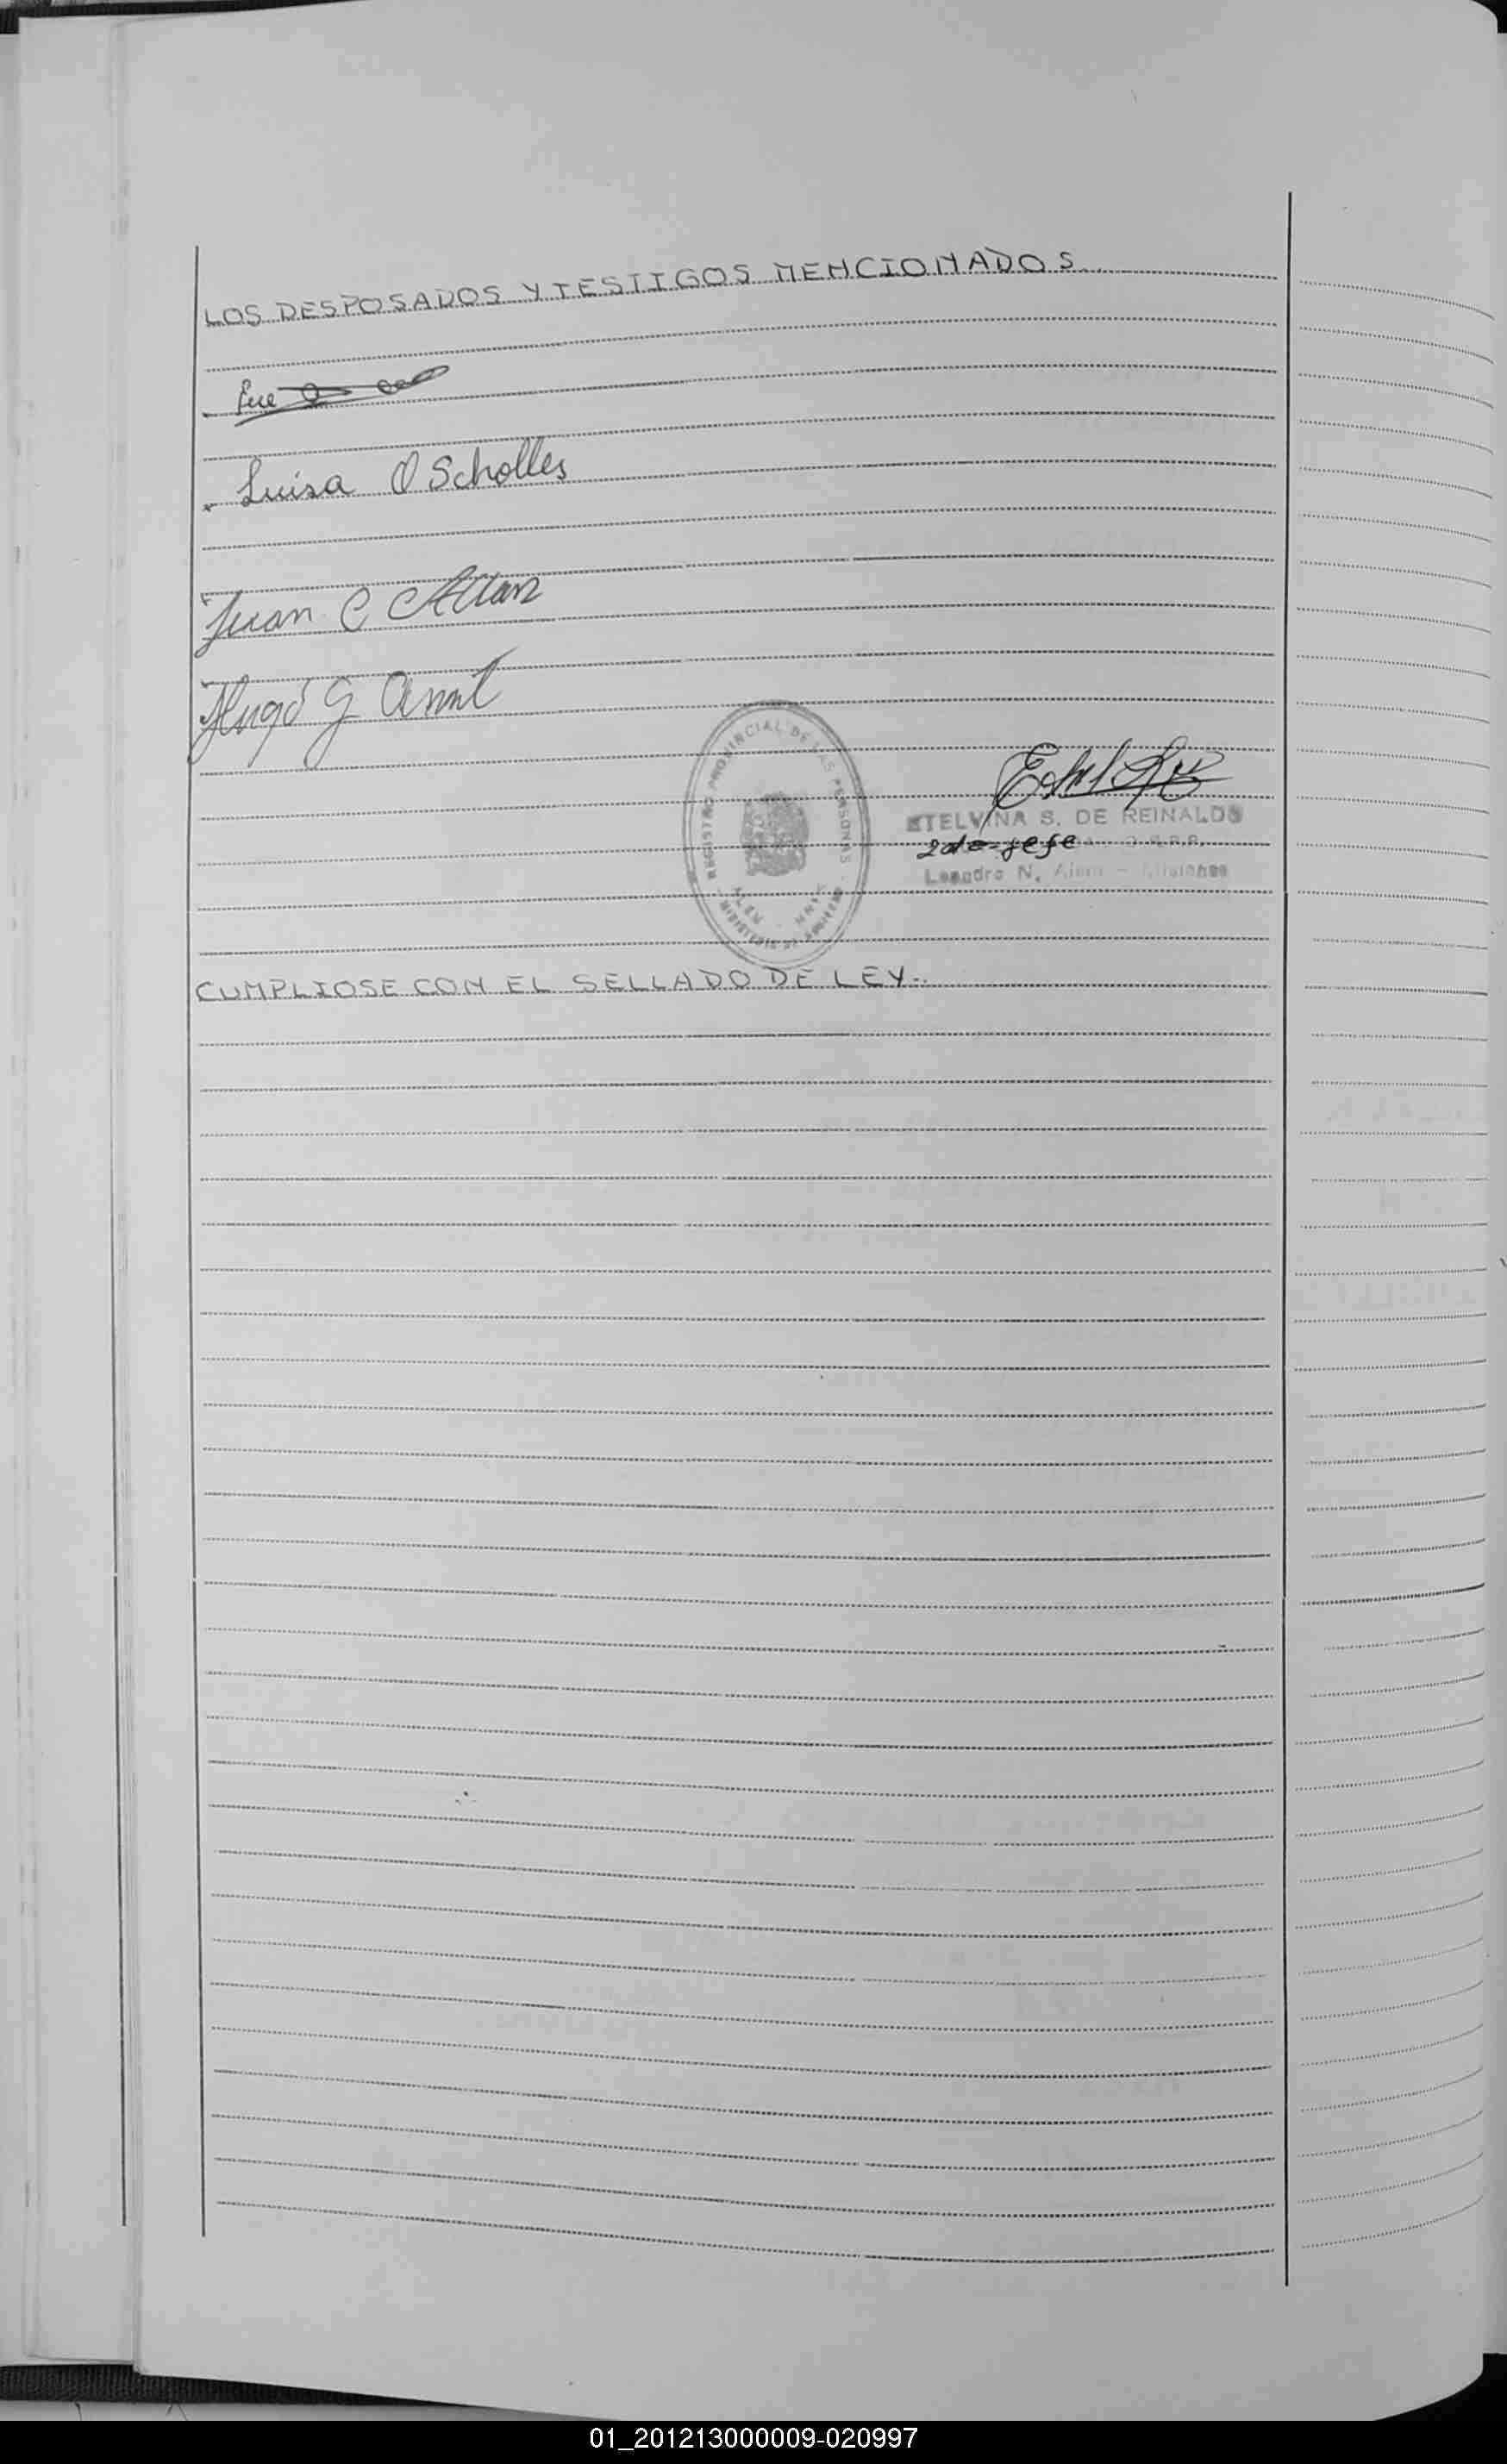 LOS DESPOSADOS Y TESTIGOS MENCIONADOS..
Luisa O Scholles
Juan C
Hugo G
REGISTRO PROVINCIAL DE LAS PERSONAS
ETELVINA S. DE REINALDO
2do-jefe
Leandro N. Alem - Misiones
CUMPLIOSE CON EL SELLADO DE LEY..
01_201213000009-020997